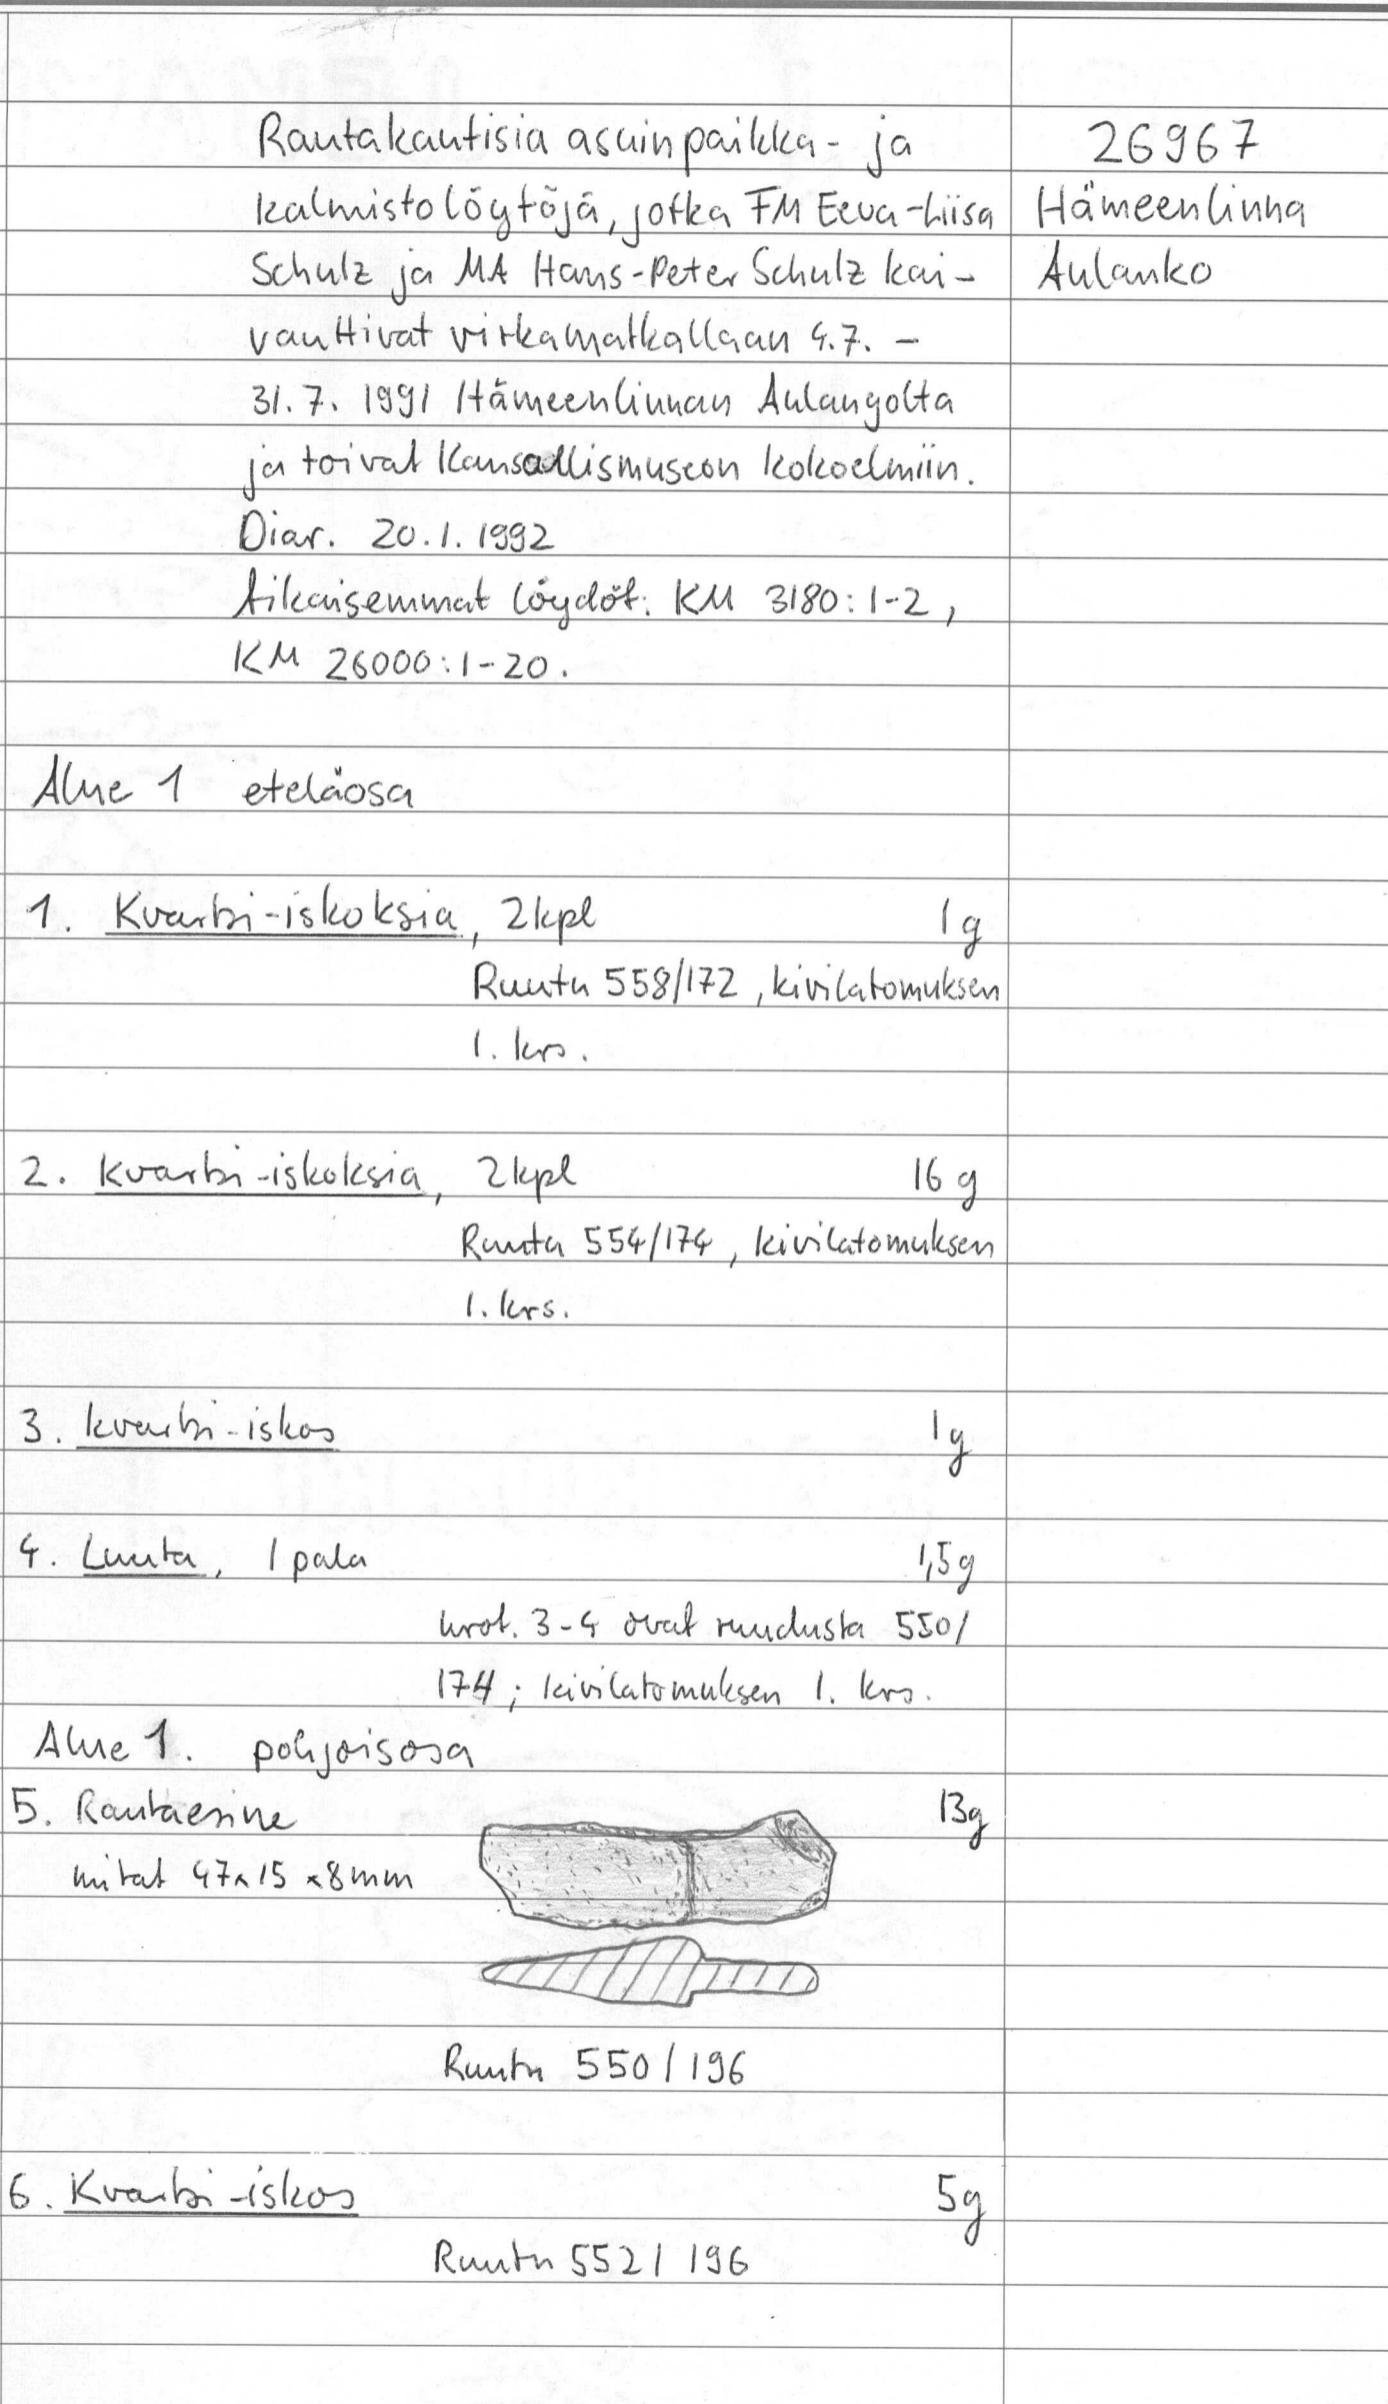 Rautakautisia asuinpaikka- ja
kalmistolöytöjä, jotka FM Eeva-Liisa
Schulz ja MA Hans-Peter Schulz kai-
vauttivat virkamatkallaan 4.7. –
31.7. 1991 Hämeenlinnan Aulangolta
ja toivat Kansallismuseon kokoelmiin.
Diar. 20.1.1992
Aikaisemmat löydöt: KM 3180:1-2,
KM 26000:1-20.
26967
Hämeenlinna
Aulanko
Alue 1 eteläosa
1. Kvartsi-iskoksia, 2kpl 1g
Ruutu 558/172, kivilatomuksen
1. krs.
2. Kvartsi-iskoksia, 2kpl 16 g
Ruutu 554/174, kivilatomuksen
1. krs.
3. kvartsi-iskos 1g
4. Luuta, 1 pala 1,5g
nrot. 3-4 ovat ruudusta 550/
174; kivilatomuksen 1. krs.
Alue 1. pohjoisosa
5. Rautaesine 13g
mitat 47x15x8mm
Ruutu 550/196
6. Kvartsi-iskos 5g
Ruutu 552/196